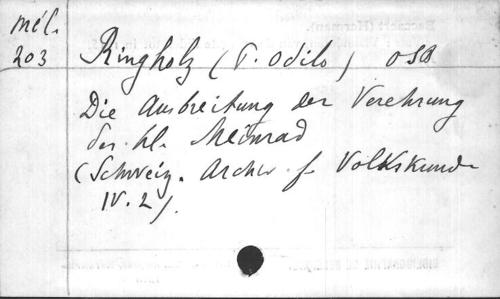 mél.
203
Ringholz (P. Odilo) OSB
Die Ausbreitung der Verehrung
des hl. Meinrad
(Schweiz. Archiv f. Volkskunde
IV. 2).